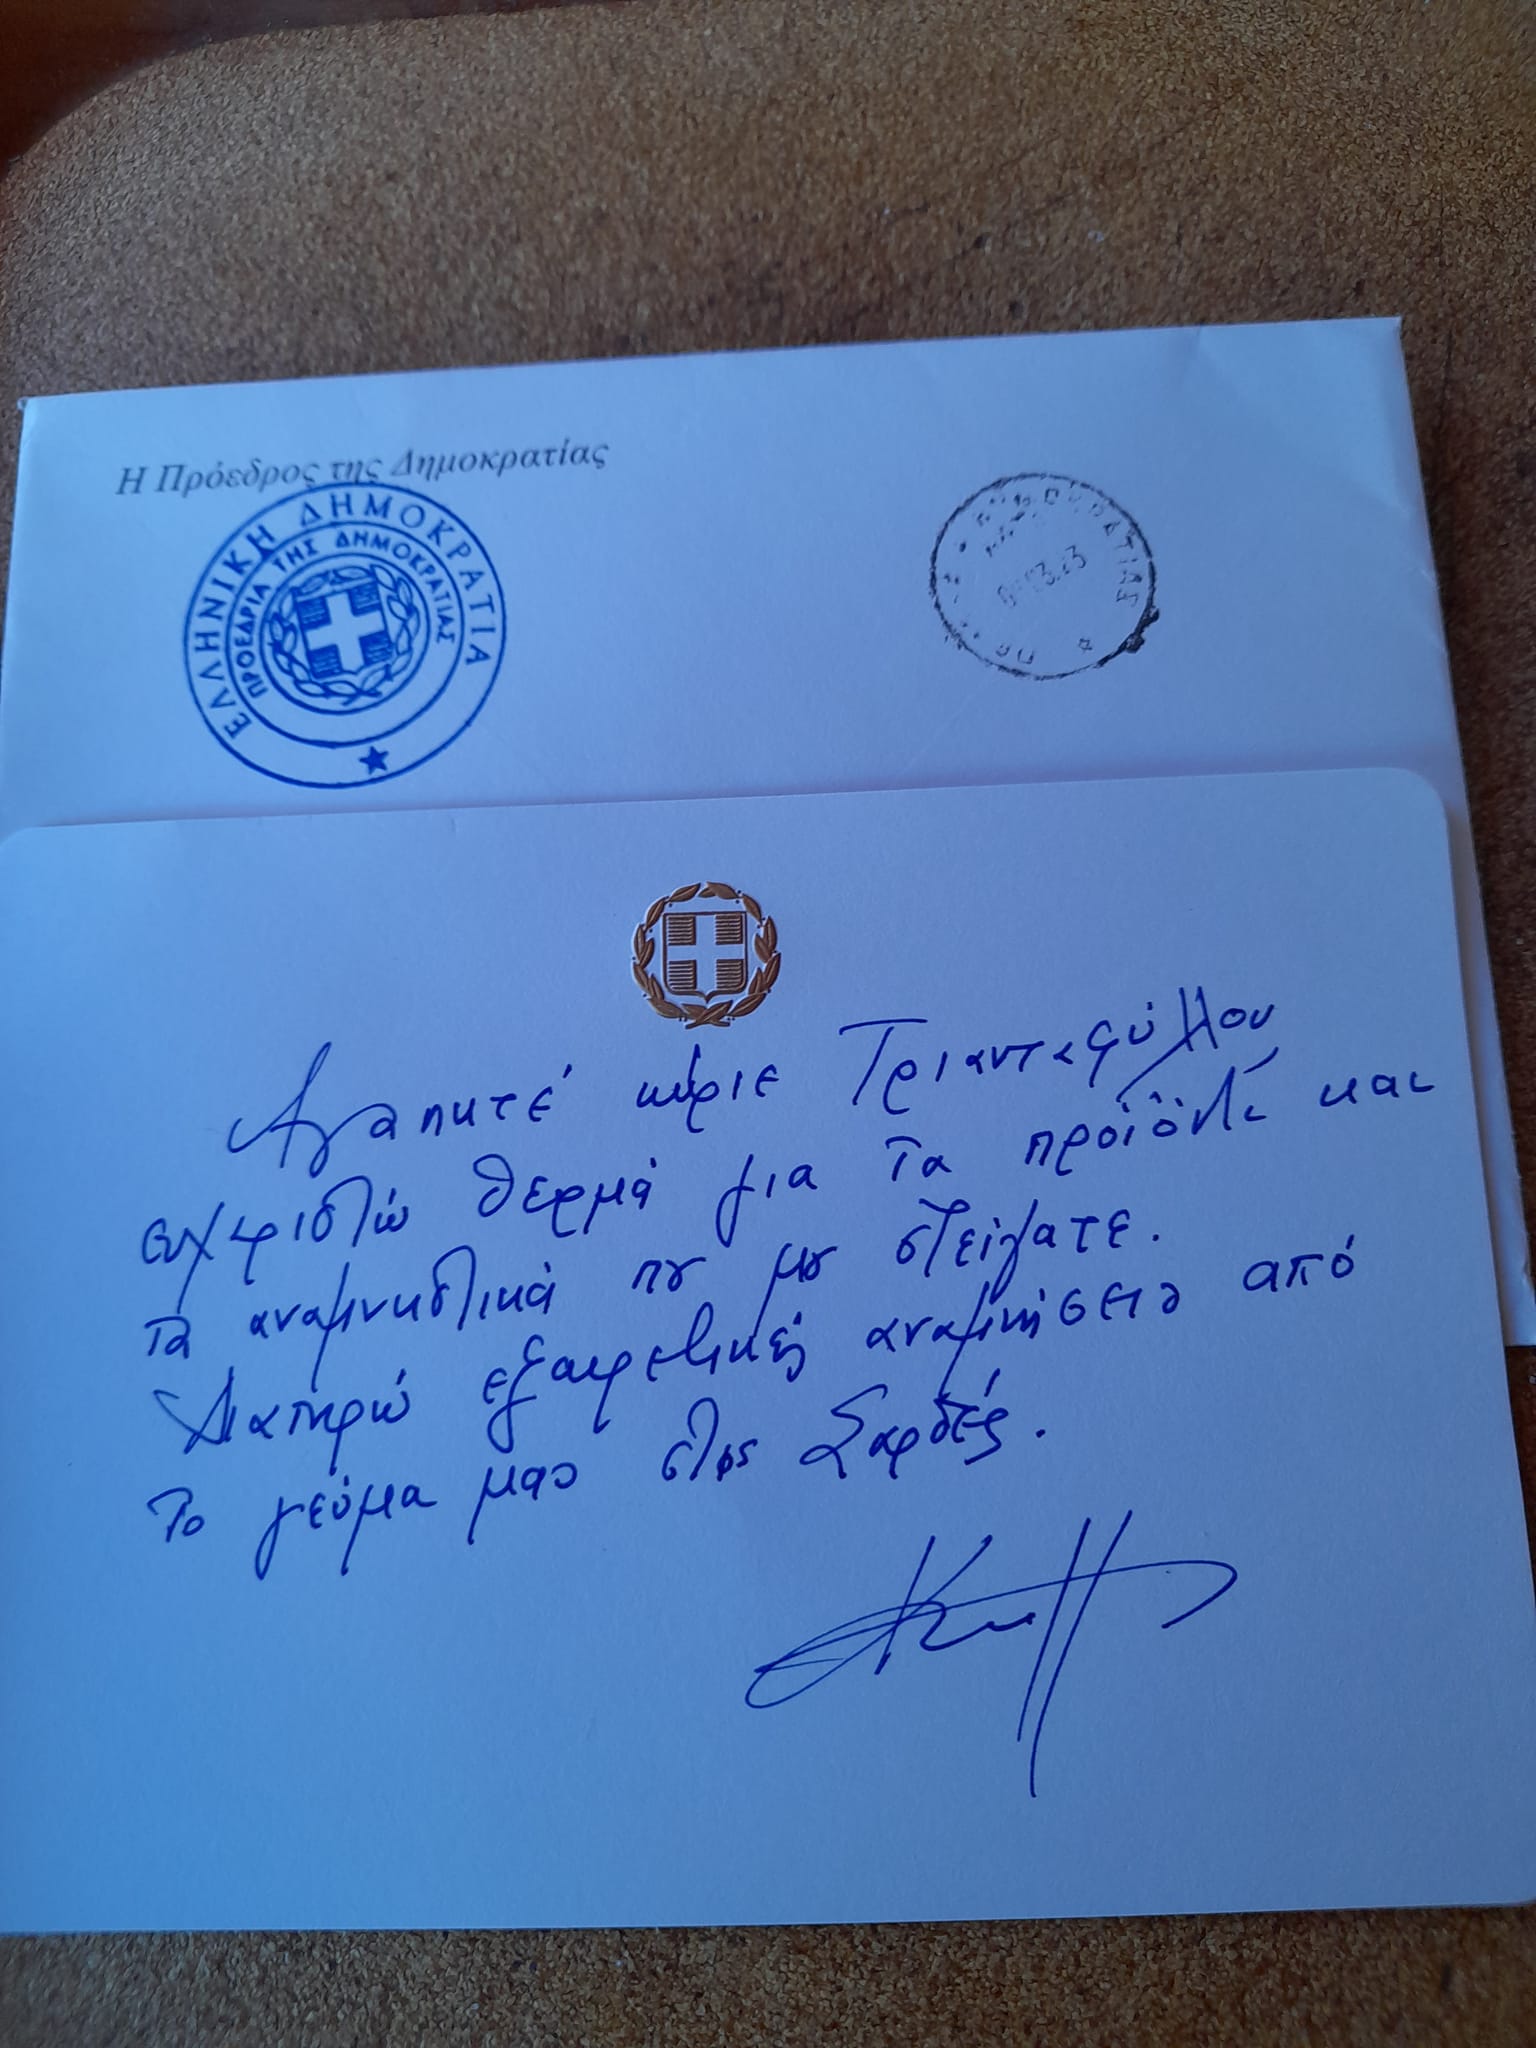 Η Πρόεδρος της Δημοκρατίας
ΕΛΛΗΝΙΚΗ ΔΗΜΟΚΡΑΤΙΑ
ΠΡΟΕΔΡΙΑ ΤΗΣ ΔΗΜΟΚΡΑΤΙΑΣ
Αγαπητέ κύριε Τριανταφύλλου
ευχαριστώ θερμά για τα προϊόντα και
τα αναμνηστικά που μου στείλατε.
Διατηρώ εξαιρετικές αναμνήσεις από
το γεύμα μας στις Σαρδές.